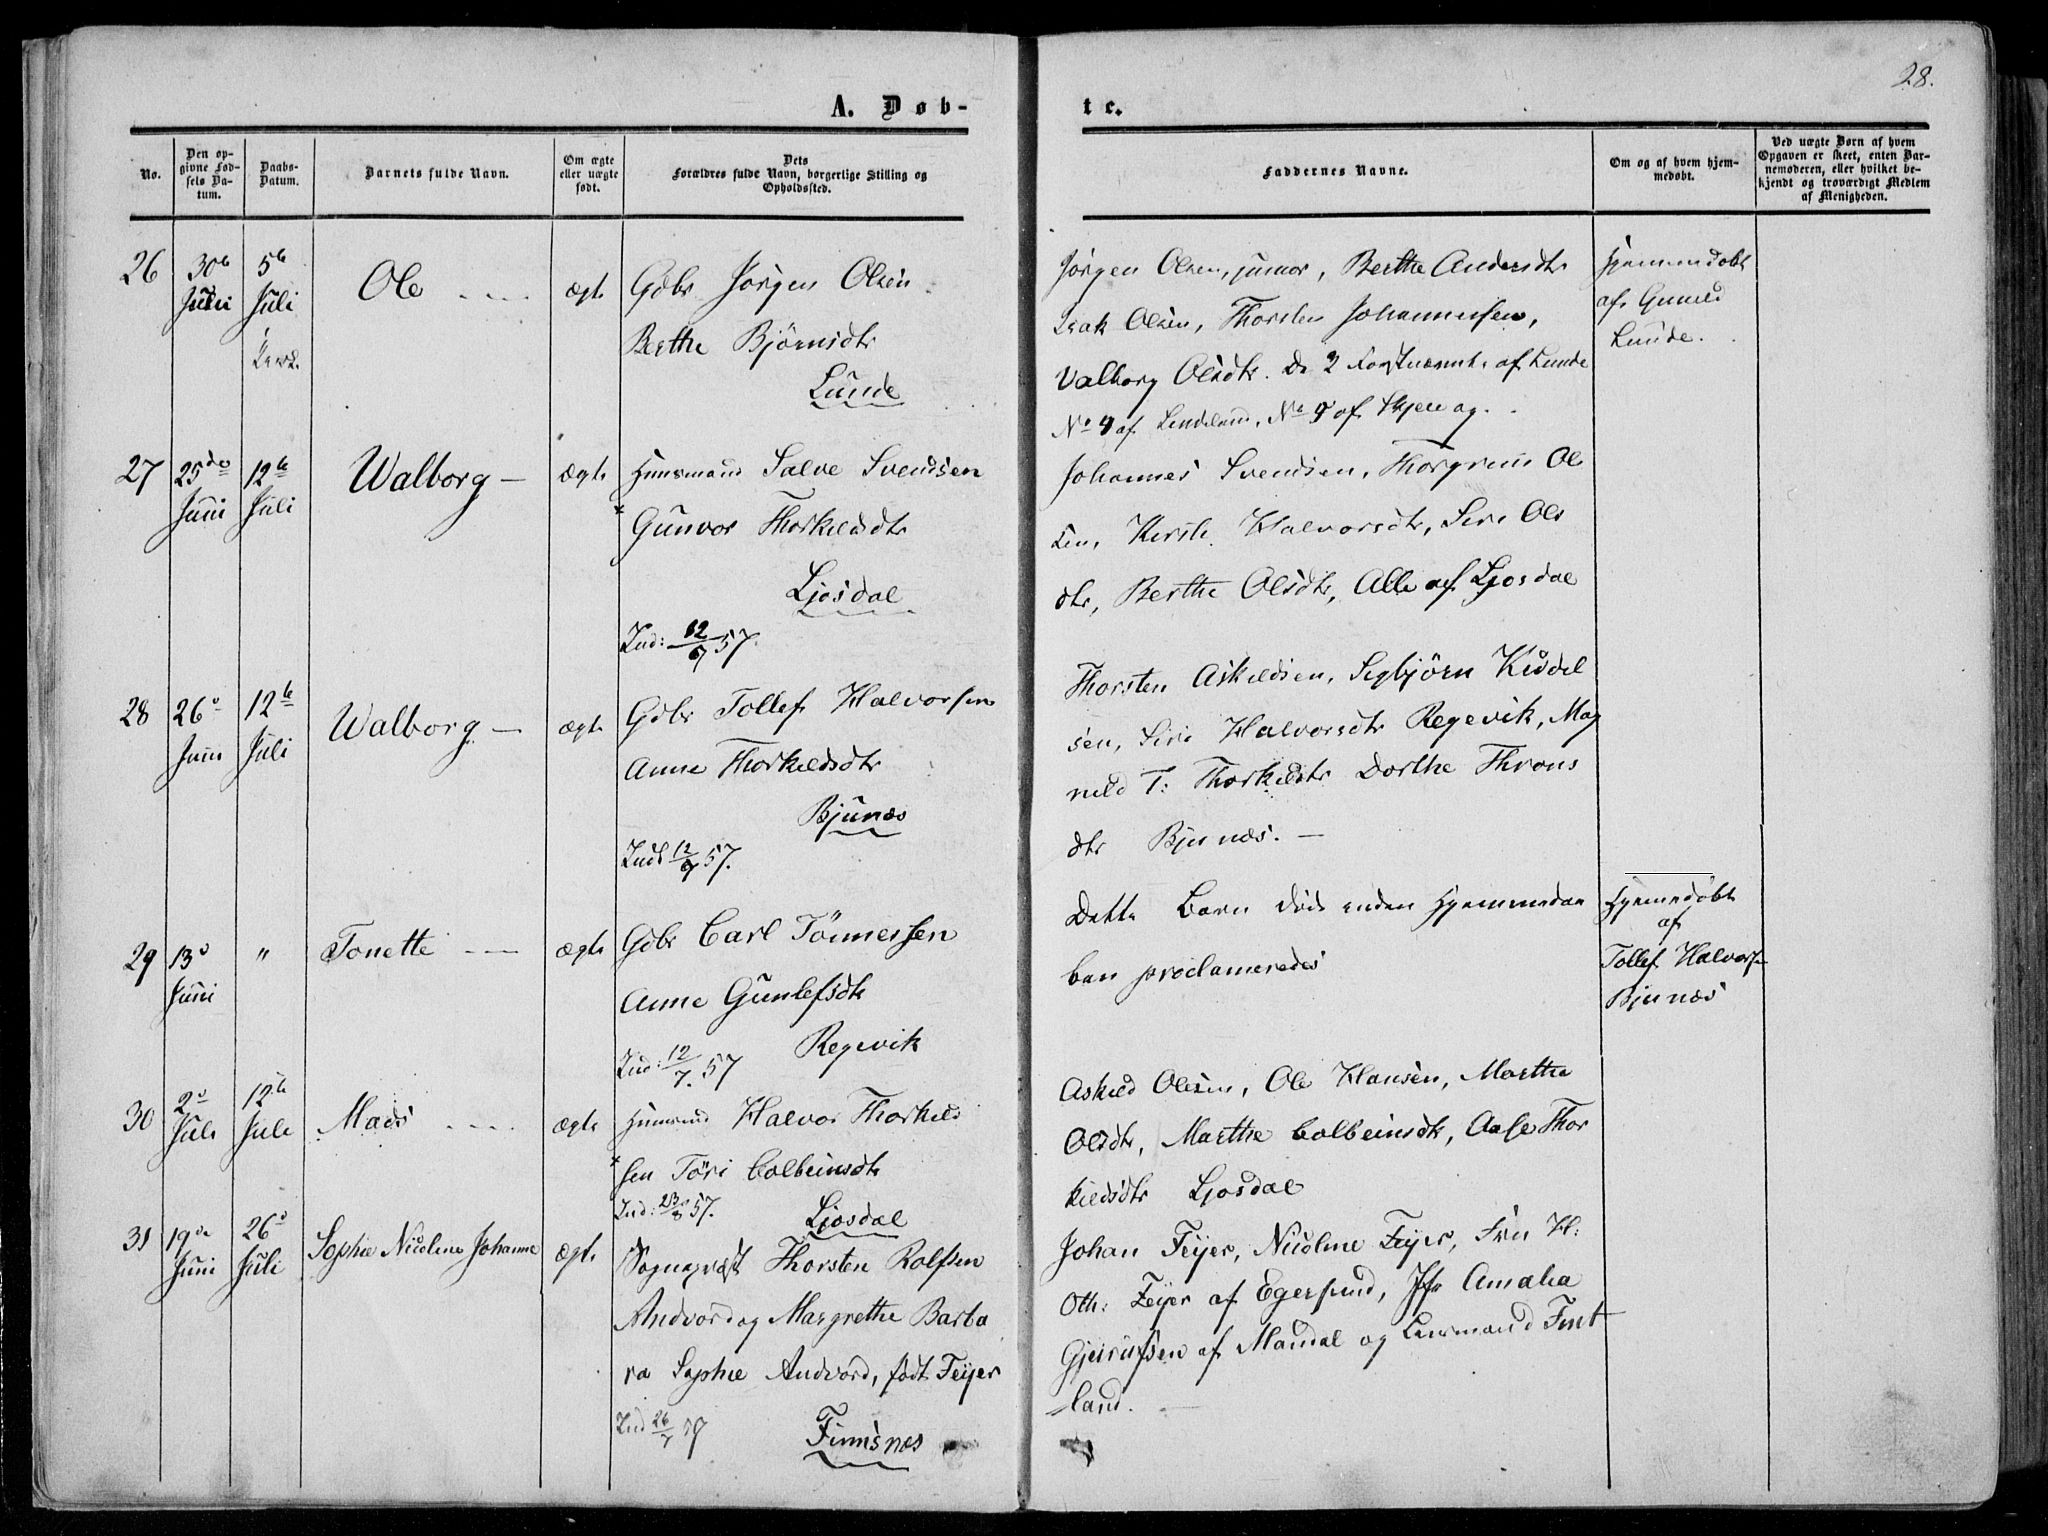 28.
A. Døb-
te.
No.
Den op-
givne Fød-
sels Da-
tum.
Daabs-
Datum.
Barnets fulde Navn.
Om ægte
eller uægte
født.
Dets
Forældres fulde Navn, borgerlige Stilling og
Opholdssted.
Faddernes Navne.
Om og af hvem hjem-
medøbt.
Ved uægte Børn af hvem
Opgaven er skeet, enten Bar-
nemoderen, eller hvilket be-
kjendt og troværdigt Medlem
af Menigheden.
26
30te
Juni
5te
Juli
Ole
ægte
Gdbr Jørgen Olsen
Berthe Bjørnsdtr
Lunde
Jørgen Olsen, junior, Berthe Andersdtr
Isak Olsen, Thorsten Johannessen,
Valborg Olsdtr. De 2 Førstnævnte af Lunde
No 4 af Lindeland, No 5 af Skjereog.
Hjemmedøbt
af Gunild
Lunde.
27
25de
Juni
12te
Juli
Walborg
ægte
Huusmand Salve Svendsen
Gunvor Thorkildsdtr
Ljosdal
Ind: 12/7 57.
Johannes Svendsen, Thorgrim Ol
sen, Kirsti Halvorsdtr, Siri Ols
dtr, Berthe Olsdtr, Alle af Ljosdal
28
26de
Juni
12te
Juli
Walborg
ægte
Gdbr Tollef Halvorsen
Anne Thorkildsdtr
Bjunæs
Inds 12/7 57.
Thorsten Askildsen, Segbjörn Kiddel
sen, Siri Halvorsdtr Regevik, Mag
nild T: Thorkildtr Dorthe Throns
dtr Bjunæs.
29
13de
Juni
"
Tonette
ægte
Gdbr Carl Tönnessen
Anne Gunlefsdtr
Regevik
Ind: 12/7. 57
Dette Barn døde inden Hjemmedaa
ben proclameredes
Hjemmedøbt
af
Tollef Halvorsen
Bjunæs
30
2den
Juli
12te
Juli
Mads
ægte
Huusmd Halvor Thorkild
sen Töri Colbeinsdtr
Ind: 23/8 57.
Ljosdal
Askild Olsen, Ole Hansen, Marthe
Olsdtr, Marthe Colbeinsdtr, Aase Thor
kildsdtr Ljosdal
31
19de
Juni
26de
Juli
Sophie Nicoline Johanne
ægte
Sognepræst Thorsten Rolfsen
Andvord og Margrethe Barba
ra Sophie Andvord, født Feyer
Ind 26/7 57
Finsnes
Johan Feyer, Nicoline Feyer, Fru H:
Oth: Feyer af Egersund, Jfr Amalia
Gjerulfsen af Mandal og Lensmand Fint
land.